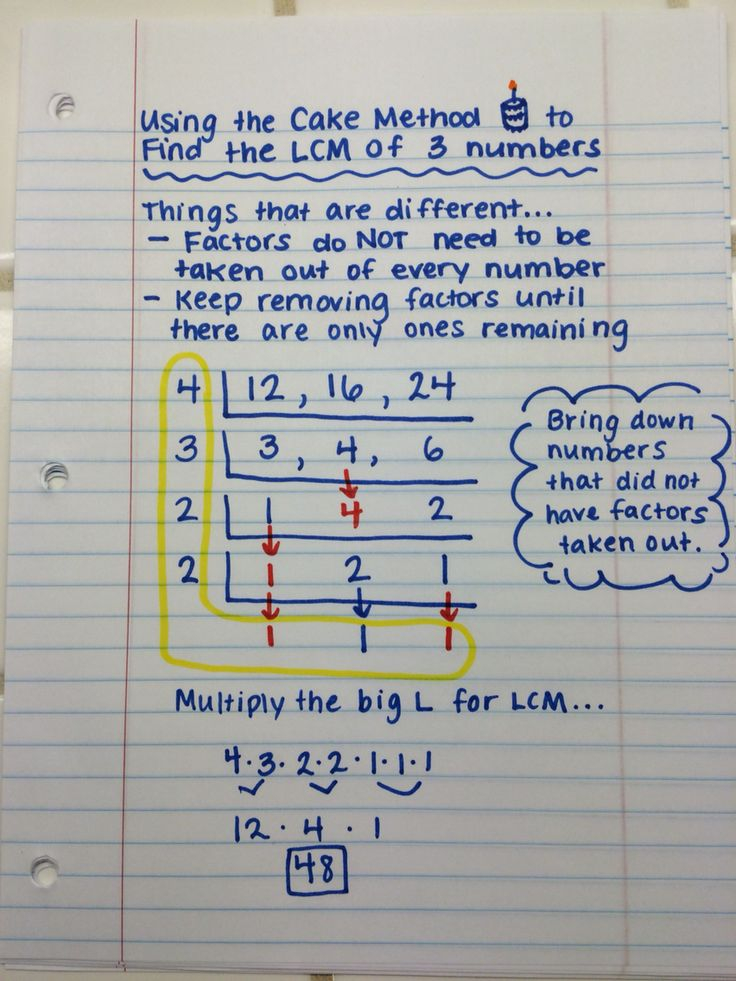 Using the Cake Method to
Find the LCM of 3 numbers
Things that are different...
- Factors do NOT need to be
taken out of every number
- Keep removing factors until
there are only ones remaining
4 12, 16, 24
3 3, 4, 6
2 1 4 2
2 1 2 1
1 1 1
Bring down
numbers
that did not
have factors
taken out.
Multiply the big L for LCM...
4·3·2·2·1·1·1
12·4·1
48